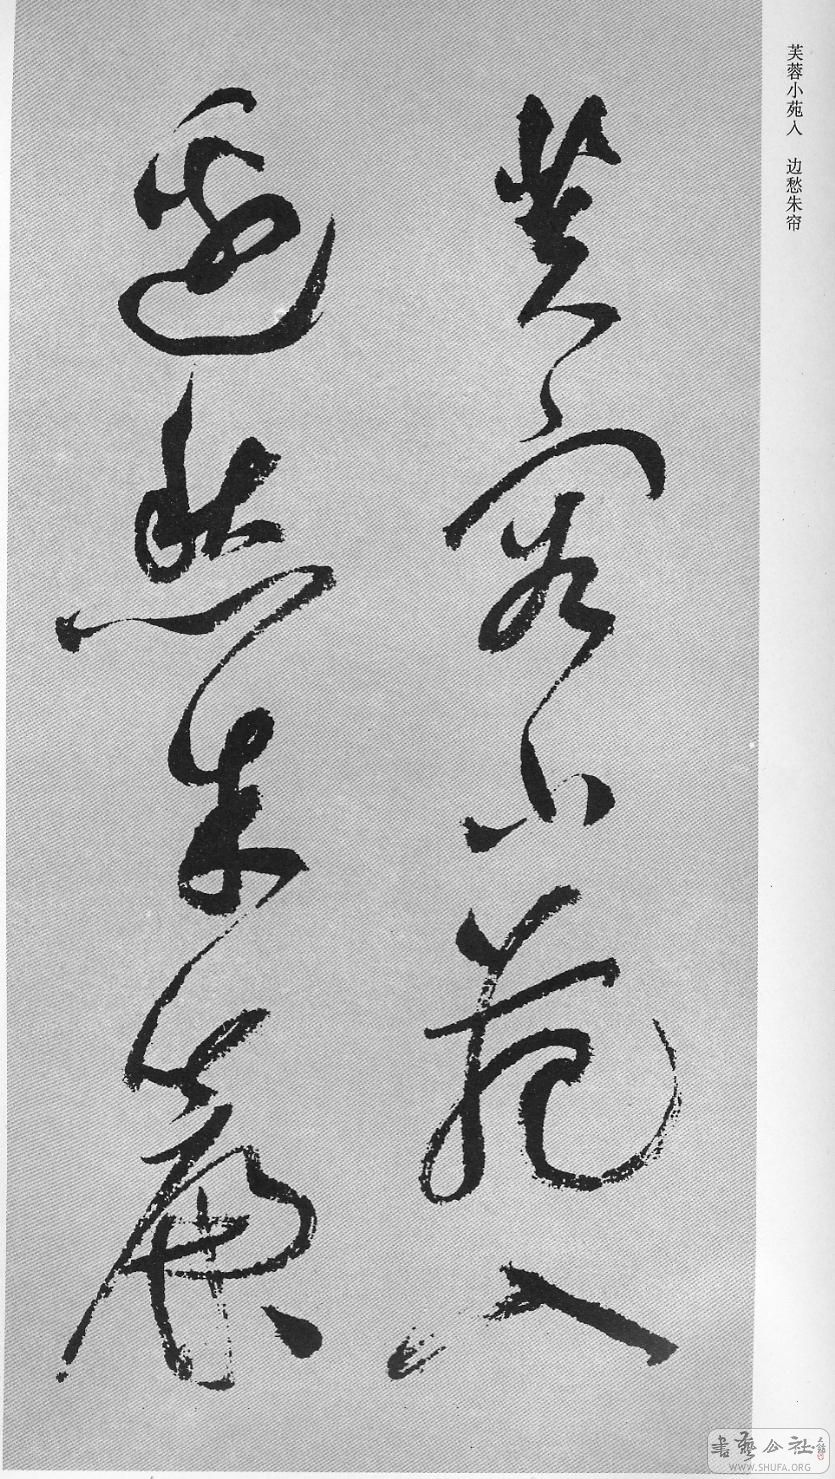 芙蓉小苑入 边愁朱帘
芙蓉小苑入
邊愁朱簾
書藝公社
WWW.SHUFA.ORG